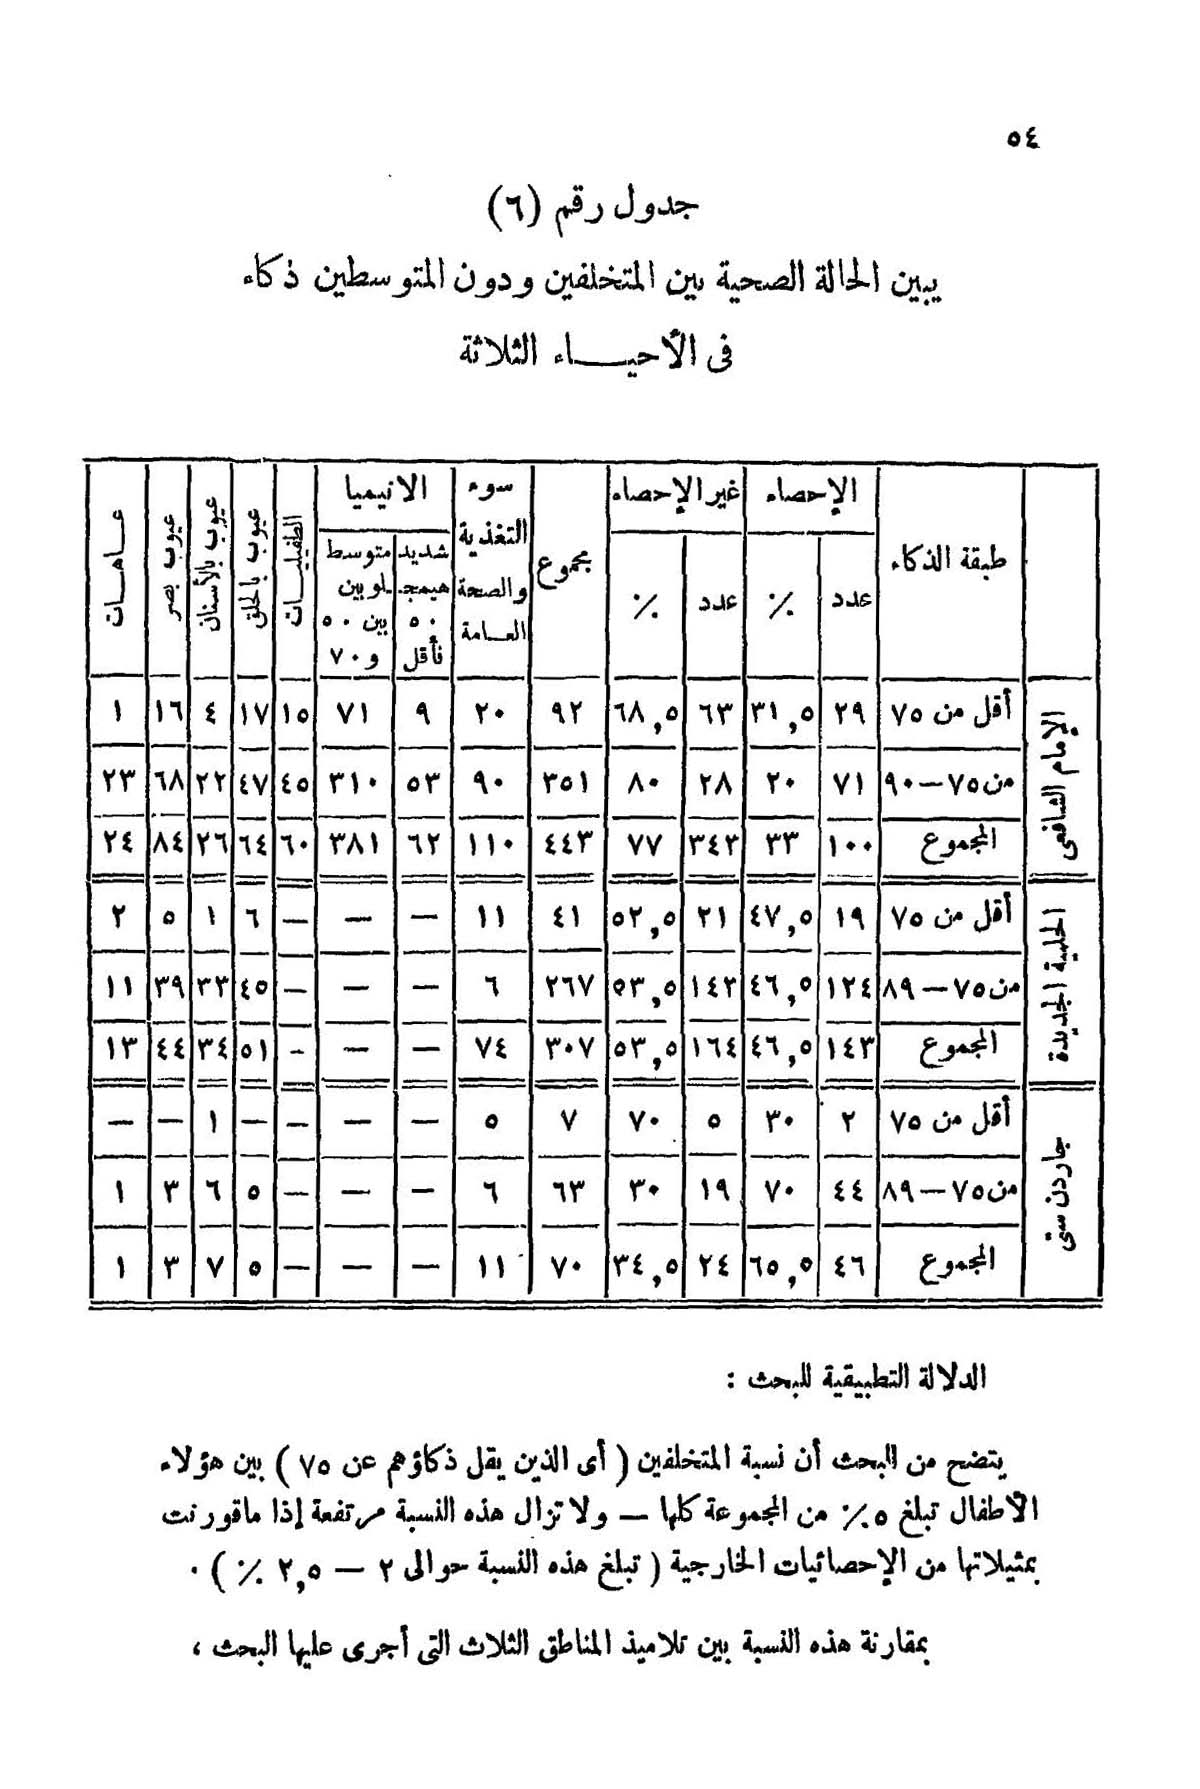 ٥٤
جدول رقم (٦)
يبين الحالة الصحية بين المتخلفين ودون المتوسطين ذكاء
فى الأحيـــاء الثلاثة
طبقة الذكاء | الإحصاء | غير الإحصاء | مجموع | سوء التغذية والصحة العـامة | الانيميا | الطفيليـات | عيوب بالحلق | عيوب بالأسنان | عيوب بصر | عـاهـات
عدد | ٪ | عدد | ٪ | شديد هيمجـ ٥٠ فأقل | متوسط ـلوبين بين ٥٠ و ٧٠
الإمام الشافعى
أقل من ٧٥ | ٢٩ | ٣١,٥ | ٦٣ | ٦٨,٥ | ٩٢ | ٢٠ | ٩ | ٧١ | ١٥ | ١٧ | ٤ | ١٦ | ١
من ٧٥ – ٩٠ | ٧١ | ٢٠ | ٢٨ | ٨٠ | ٣٥١ | ٩٠ | ٥٣ | ٣١٠ | ٤٥ | ٤٧ | ٢٢ | ٦٨ | ٢٣
المجموع | ١٠٠ | ٣٣ | ٣٤٣ | ٧٧ | ٤٤٣ | ١١٠ | ٦٢ | ٣٨١ | ٦٠ | ٦٤ | ٢٦ | ٨٤ | ٢٤
الحلمية الجديدة
أقل من ٧٥ | ١٩ | ٤٧,٥ | ٢١ | ٥٢,٥ | ٤١ | ١١ | — | — | — | ٦ | ١ | ٥ | ٢
من ٧٥ – ٨٩ | ١٢٤ | ٤٦,٥ | ١٤٢ | ٥٣,٥ | ٢٦٧ | ٦ | — | — | — | ٤٥ | ٣٣ | ٣٩ | ١١
المجموع | ١٤٣ | ٤٦,٥ | ١٦٤ | ٥٣,٥ | ٣٠٧ | ٧٤ | — | — | - | ٥١ | ٣٤ | ٤٤ | ١٣
جاردن ستى
أقل من ٧٥ | ٢ | ٣٠ | ٥ | ٧٠ | ٧ | ٥ | — | — | — | — | ١ | — | —
من ٧٥ – ٨٩ | ٤٤ | ٧٠ | ١٩ | ٣٠ | ٦٣ | ٦ | — | — | — | ٥ | ٦ | ٣ | ١
المجموع | ٤٦ | ٦٥,٥ | ٢٤ | ٣٤,٥ | ٧٠ | ١١ | — | — | — | ٥ | ٧ | ٣ | ١
الدلالة التطبيقية للبحث :
يتضح من البحث أن نسبة المتخلفين ( أى الذين يقل ذكاؤهم عن ٧٥ ) بين هؤلاء
الأطفال تبلغ ٥ ٪ من المجموعة كلها — ولا تزال هذه النسبة مرتفعة إذا ماقورنت
بمثيلاتها من الإحصائيات الخارجية ( تبلغ هذه النسبة حوالى ٢ — ٢,٥ ٪ ) .
بمقارنة هذه النسبة بين تلاميذ المناطق الثلاث التى أجرى عليها البحث ،